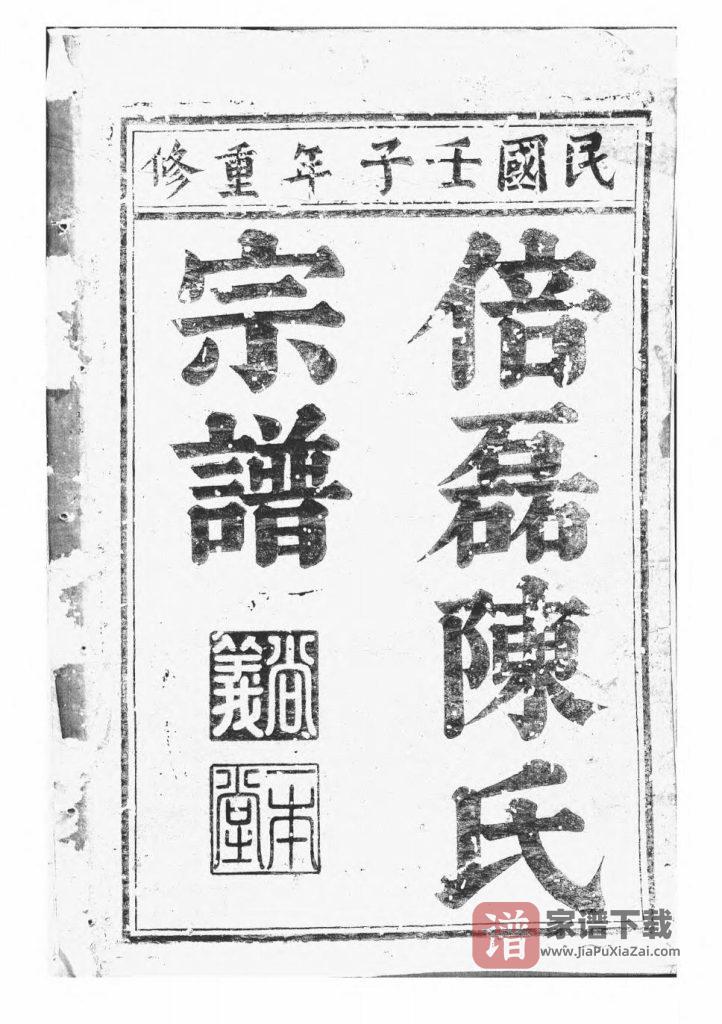 民國壬子年重修
倍磊陳氏
宗譜
尚義
一本堂
谱
家谱下载
www.JiaPuXiaZai.com